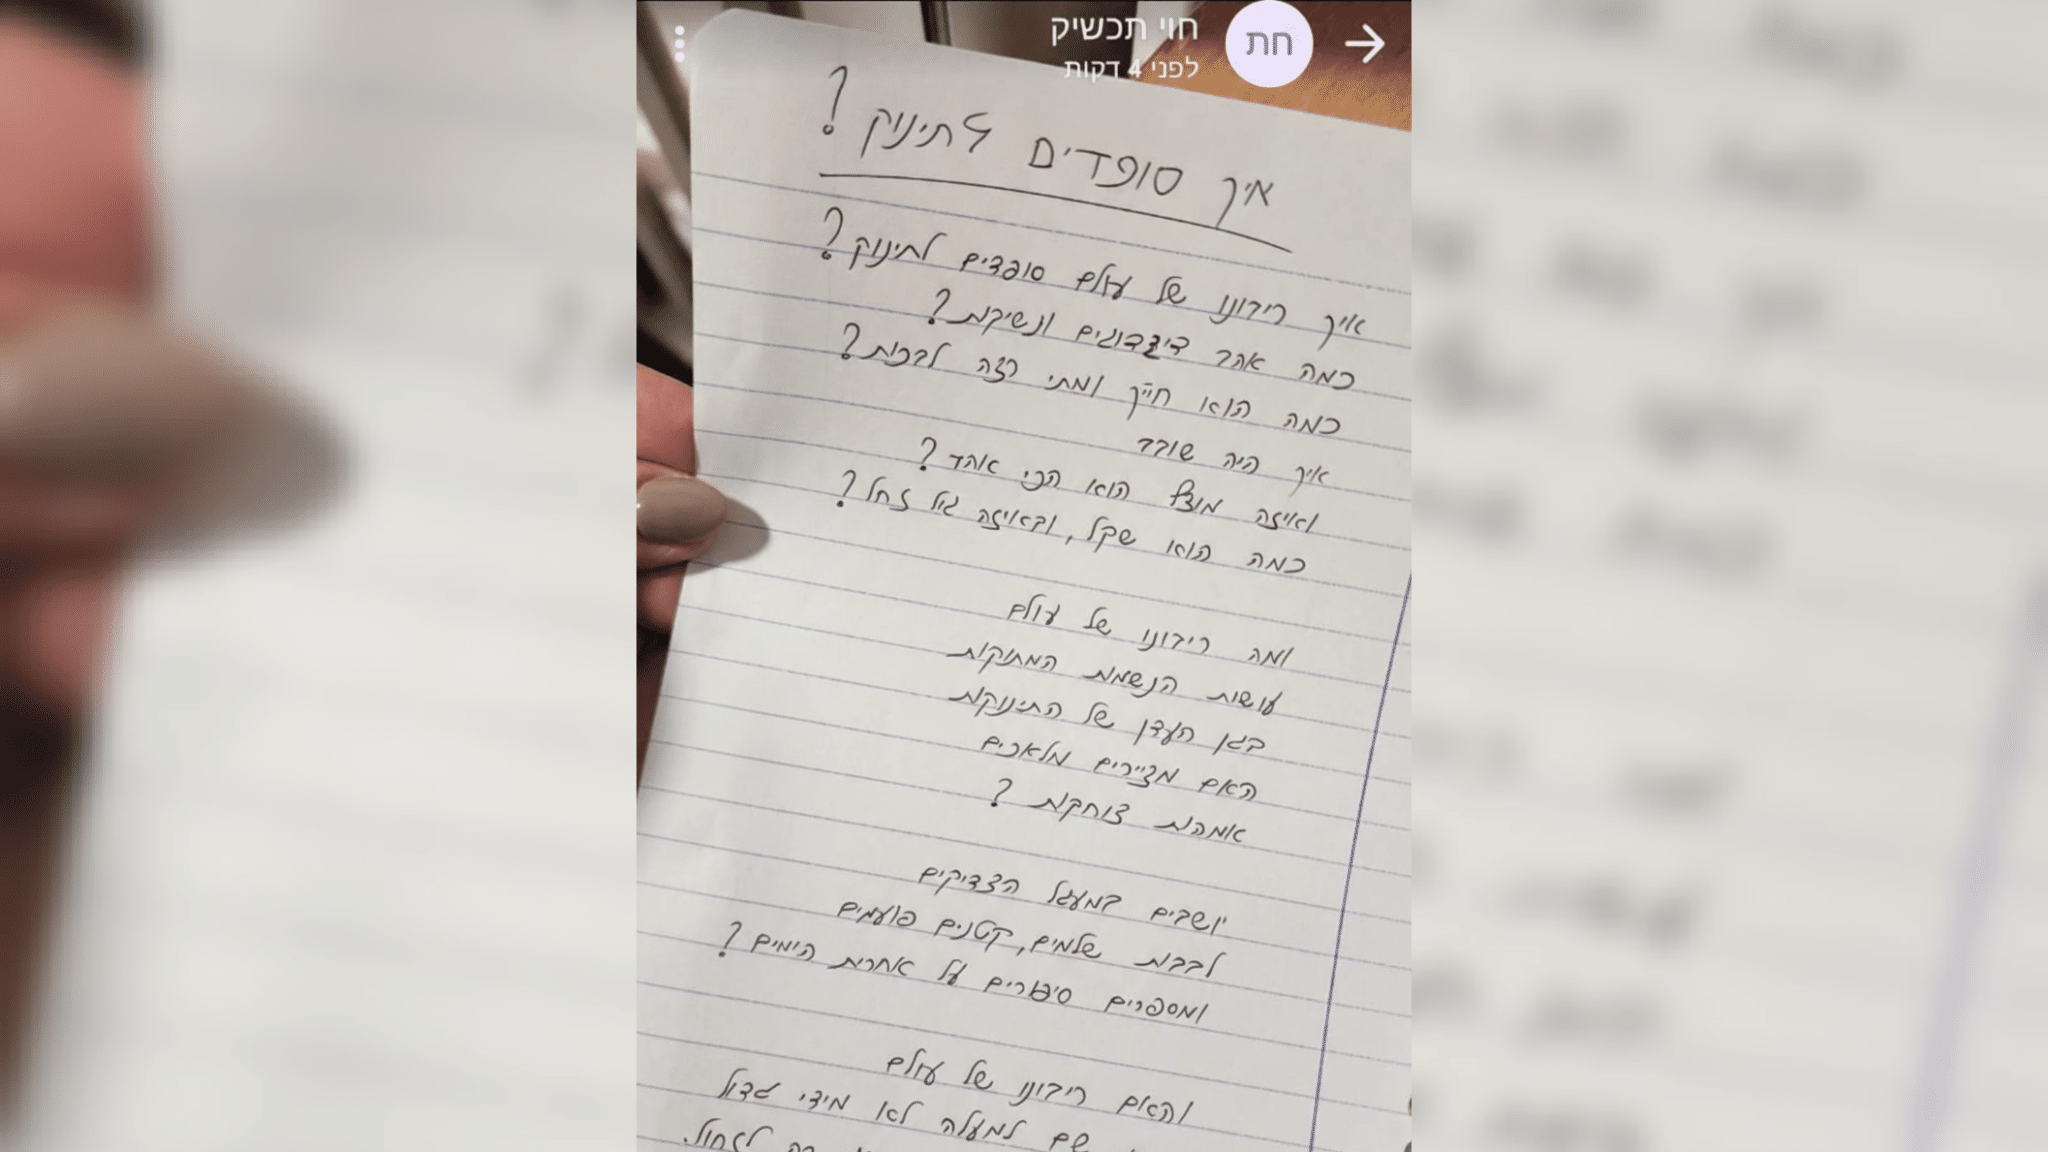 חוי תכשיק
חת
לפני 4 דקות
איך סופדים לתינוק?
איך ריבונו של עולם סופדים לתינוק?
כמה אהב דיגדוגים ונשיקות?
כמה הוא חייך ומתי רצה לבכות?
איך היה שובב
ואיזה מוצץ הוא הכי אהד?
כמה הוא שקל, ובאיזה גיל זחל?
ומה ריבונו של עולם
עושות הנשמות המתוקות
בגן העדן של התינוקות
האם מציירים מלאכים
אמהות צוחקות?
יושבים במעגל הצדיקים
לבבות שלמים, קטנים פועמים
ומספרים סיפורים על אחרית הימים?
והאם ריבונו של עולם
שם למעלה לא מידי גדול
לזחול.